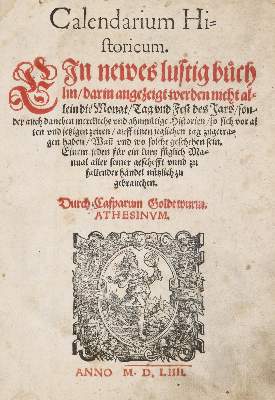 Calendarium Hi-
storicum.
EIn newes lustig büch
lin / darin angezeigt werden nicht al-
lein die Monat / Tag und Fest des Jars / son-
der auch daneben merckliche und anmütige Historien / so sich vor al
ten und jetzigen zeiten / auff einen jeglichen tag zugetra-
gen haben / Wañ und wo solche geschehen sein.
Einem jeden für ein kurtz füglich Ma-
nual aller seiner geschefft unnd zu
fallender händel nützlich zu
gebrauchen.
Durch Casparum Goldtwurm.
ATHESINVM.
ANNO M. D. LIIII.